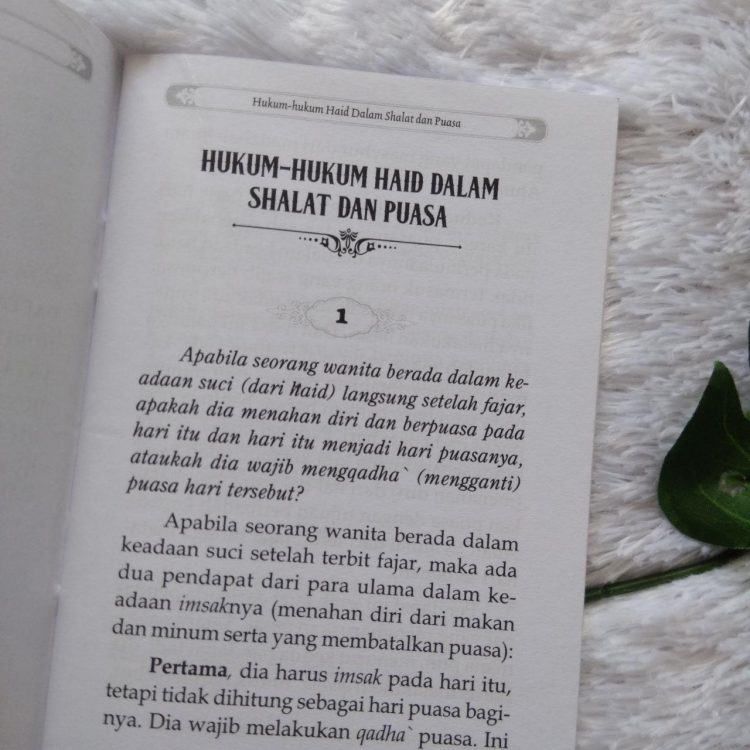 Hukum-hukum Haid Dalam Shalat dan Puasa
HUKUM-HUKUM HAID DALAM
SHALAT DAN PUASA
1
Apabila seorang wanita berada dalam ke-
adaan suci (dari haid) langsung setelah fajar,
apakah dia menahan diri dan berpuasa pada
hari itu dan hari itu menjadi hari puasanya,
ataukah dia wajib mengqadha` (mengganti)
puasa hari tersebut?
Apabila seorang wanita berada dalam
keadaan suci setelah terbit fajar, maka ada
dua pendapat dari para ulama dalam ke-
adaan imsaknya (menahan diri dari makan
dan minum serta yang membatalkan puasa):
Pertama, dia harus imsak pada hari itu,
tetapi tidak dihitung sebagai hari puasa bagi-
nya. Dia wajib melakukan qadha` puasa. Ini